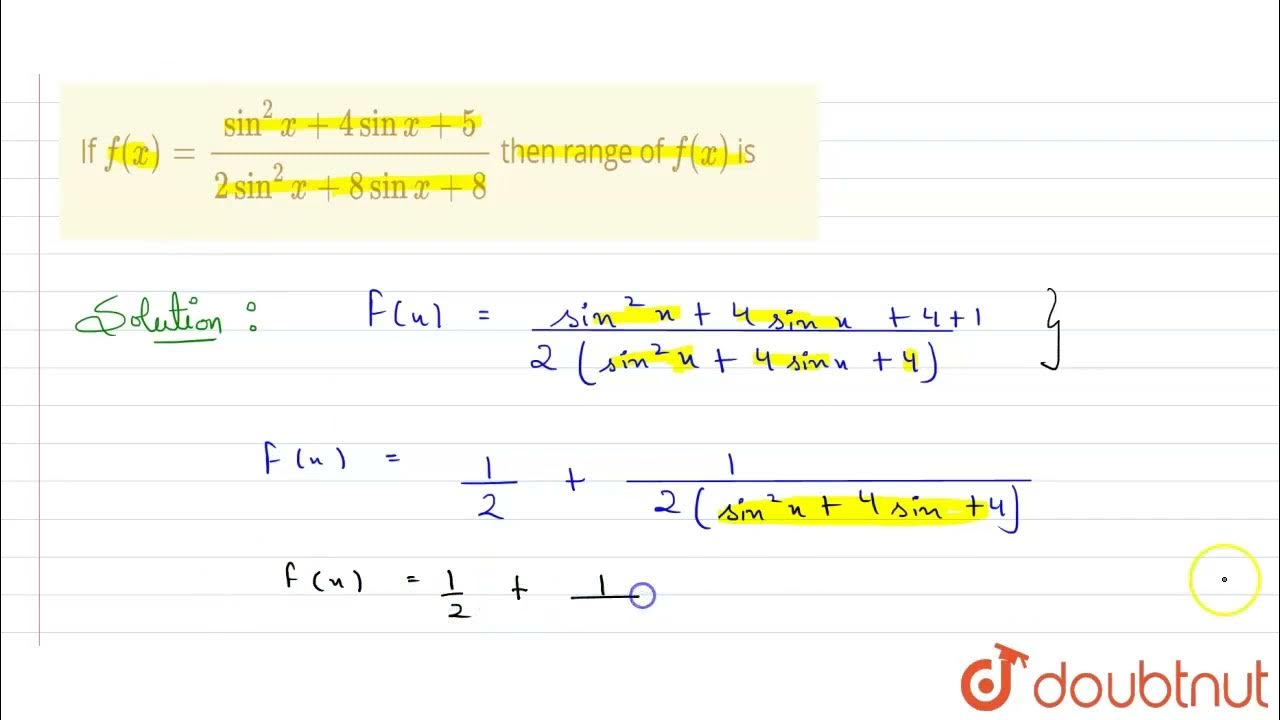 If f(x) = \frac{\sin^2 x + 4 \sin x + 5}{2 \sin^2 x + 8 \sin x + 8} then range of f(x) is
Solution : F(x) = \frac{sin^2 x + 4 sin x + 4 + 1}{2 (sin^2 x + 4 sin x + 4)} }
F(x) = \frac{1}{2} + \frac{1}{2 (sin^2 x + 4 sin + 4)}
F(x) = \frac{1}{2} + \frac{1}{}
doubtnut